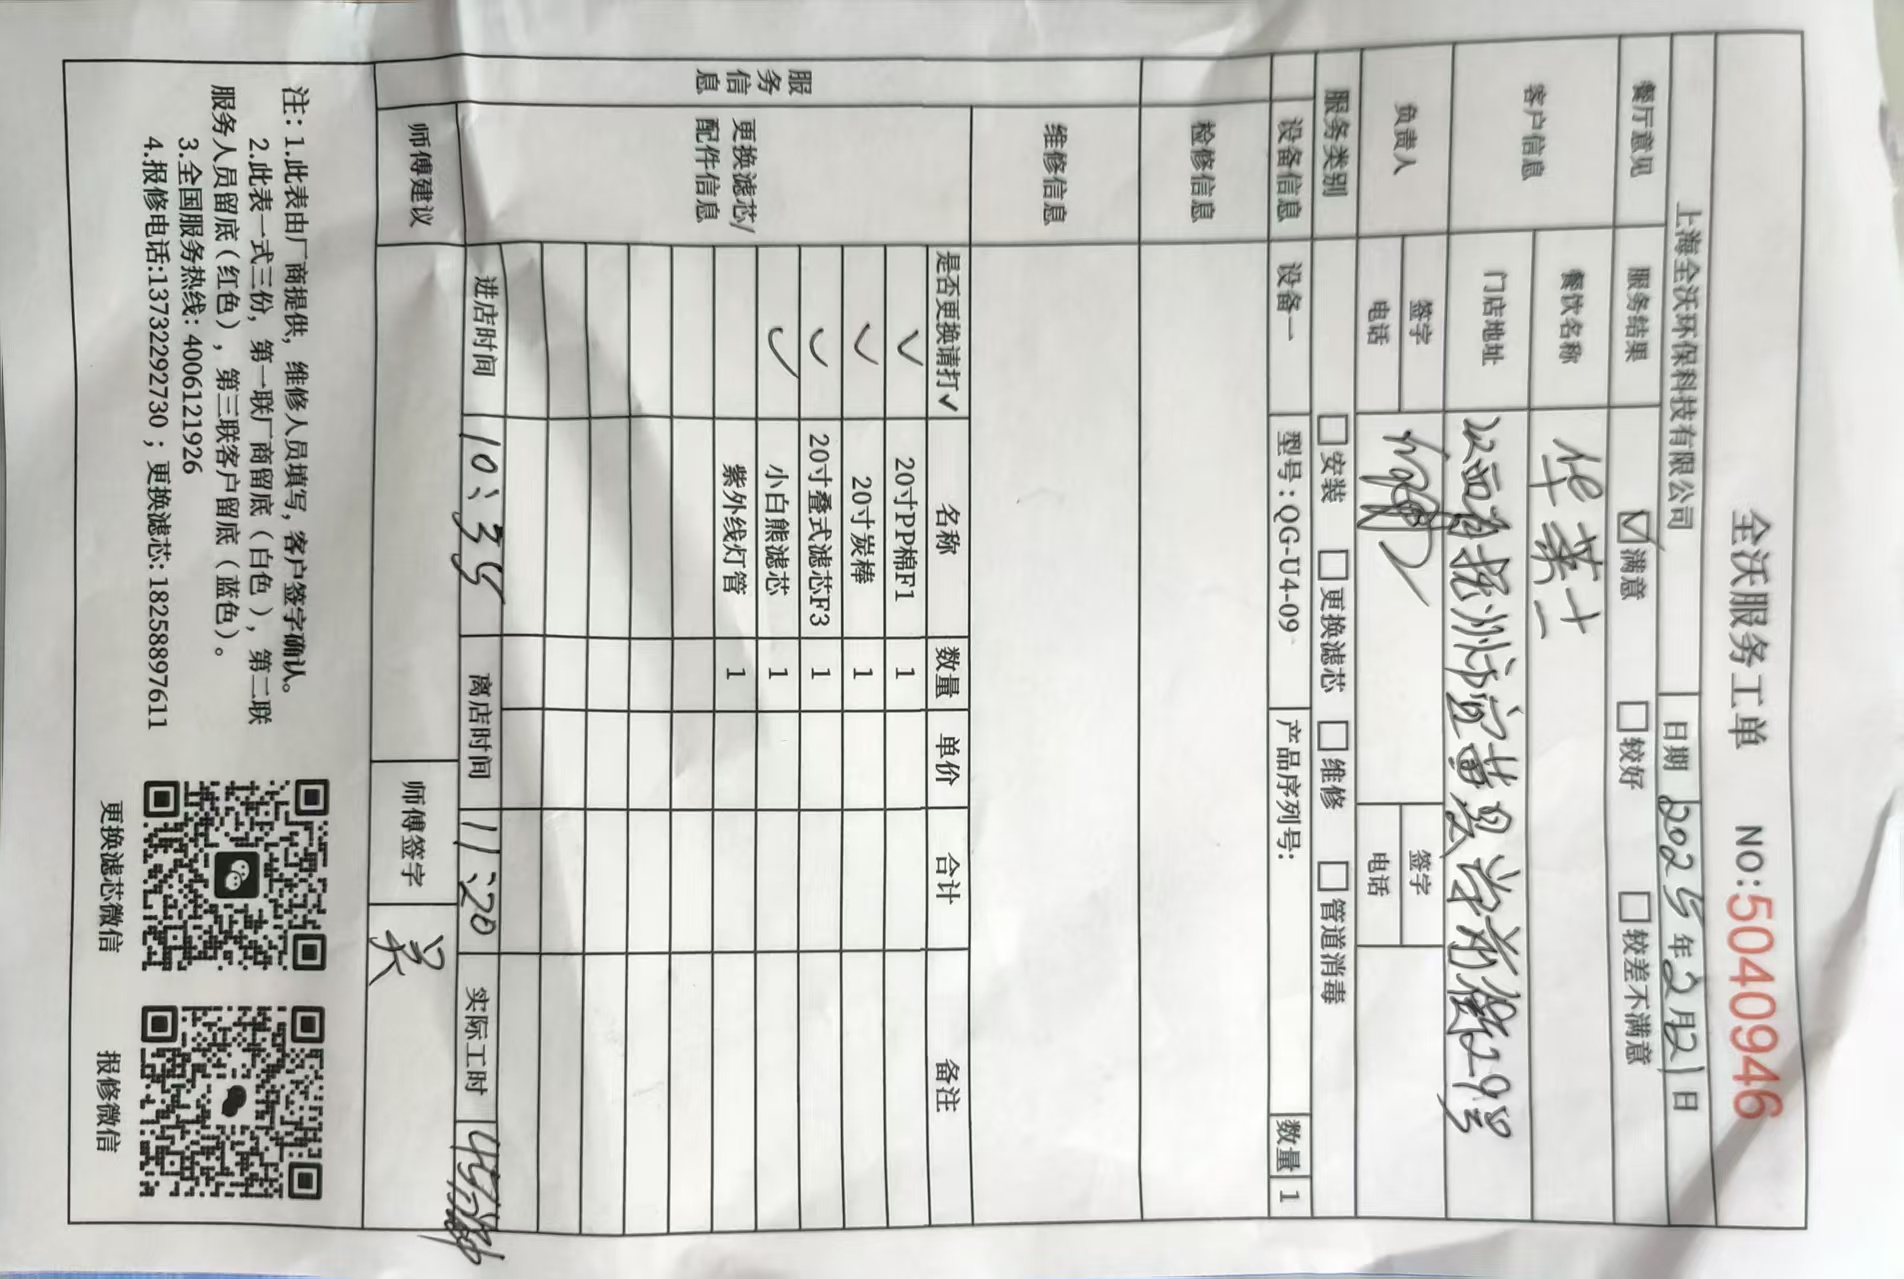 全沃服务工单 NO:5040946
上海全沃环保科技有限公司 日期 2025年2月21日
餐厅意见 服务结果 ☑满意 □较好 □较差不满意
客户信息 餐饮名称 华莱士
门店地址 江西省抚州市宜黄县 前街29号
负责人 签字 签字
电话 电话
服务类别 □安装 □更换滤芯 □维修 □管道消毒
设备信息 设备一 型号:QG-U4-09 产品序列号: 数量 1
检修信息
维修信息
服务信息
更换滤芯/配件信息
是否更换请打✓ 名称 数量 单价 合计 备注
✓ 20寸PP棉F1 1
✓ 20寸炭棒 1
✓ 20寸叠式滤芯F3 1
✓ 小白熊滤芯 1
紫外线灯管 1
进店时间 10:35 离店时间 11:20 实际工时 45分钟
师傅建议 师傅签字 吴
注：1.此表由厂商提供，维修人员填写，客户签字确认。
2.此表一式三份，第一联厂商留底（白色），第二联
服务人员留底（红色），第三联客户留底（蓝色）。
3.全国服务热线：4006121926
4.报修电话:13732292730；更换滤芯:18258897611
更换滤芯微信 报修微信